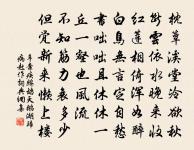 枕簟溪堂冷欲秋
斷雲依水晚來收
紅蓮相倚渾如醉
白鳥無言定自愁
書咄咄且休休一
丘一壑也風流
不知筋力衰多少
但覺新來懶上樓
辛棄疾鷓鴣天鵝湖歸
病起作